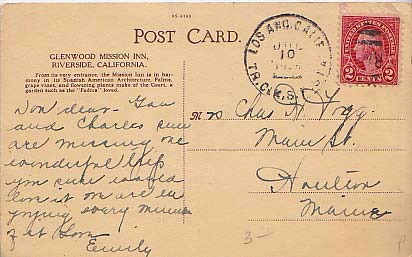 95-0100
POST CARD.
GLENWOOD MISSION INN,
RIVERSIDE, CALIFORNIA.
From its very entrance, the Mission Inn is in har-
mony in its Spanish American Architecture. Palms,
grape vines, and flowering plants make of the Court, a
garden such as the "Padres" loved.
dear - You
and Charles sure
are missing one
wonderful trip
you sure would
love it we are en
joying every minute
of it Love
Emily
LOS ANG. CALIF.
10
UNITED STATES POSTAGE
2 CENTS 2
Chas H Fogg
Main St.
Houlton
Maine
3-